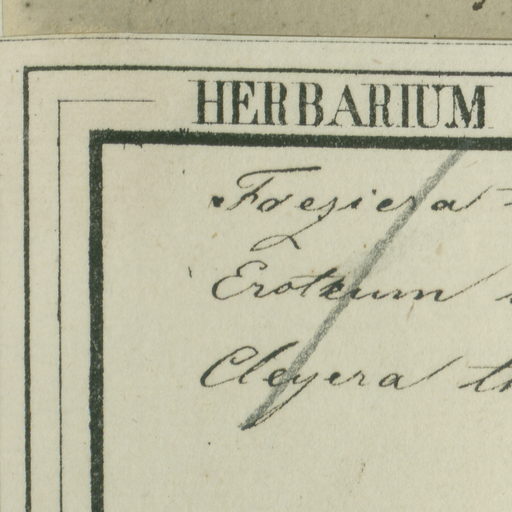 HERBARIUM
Freziera
Eroteum
Cleyera th